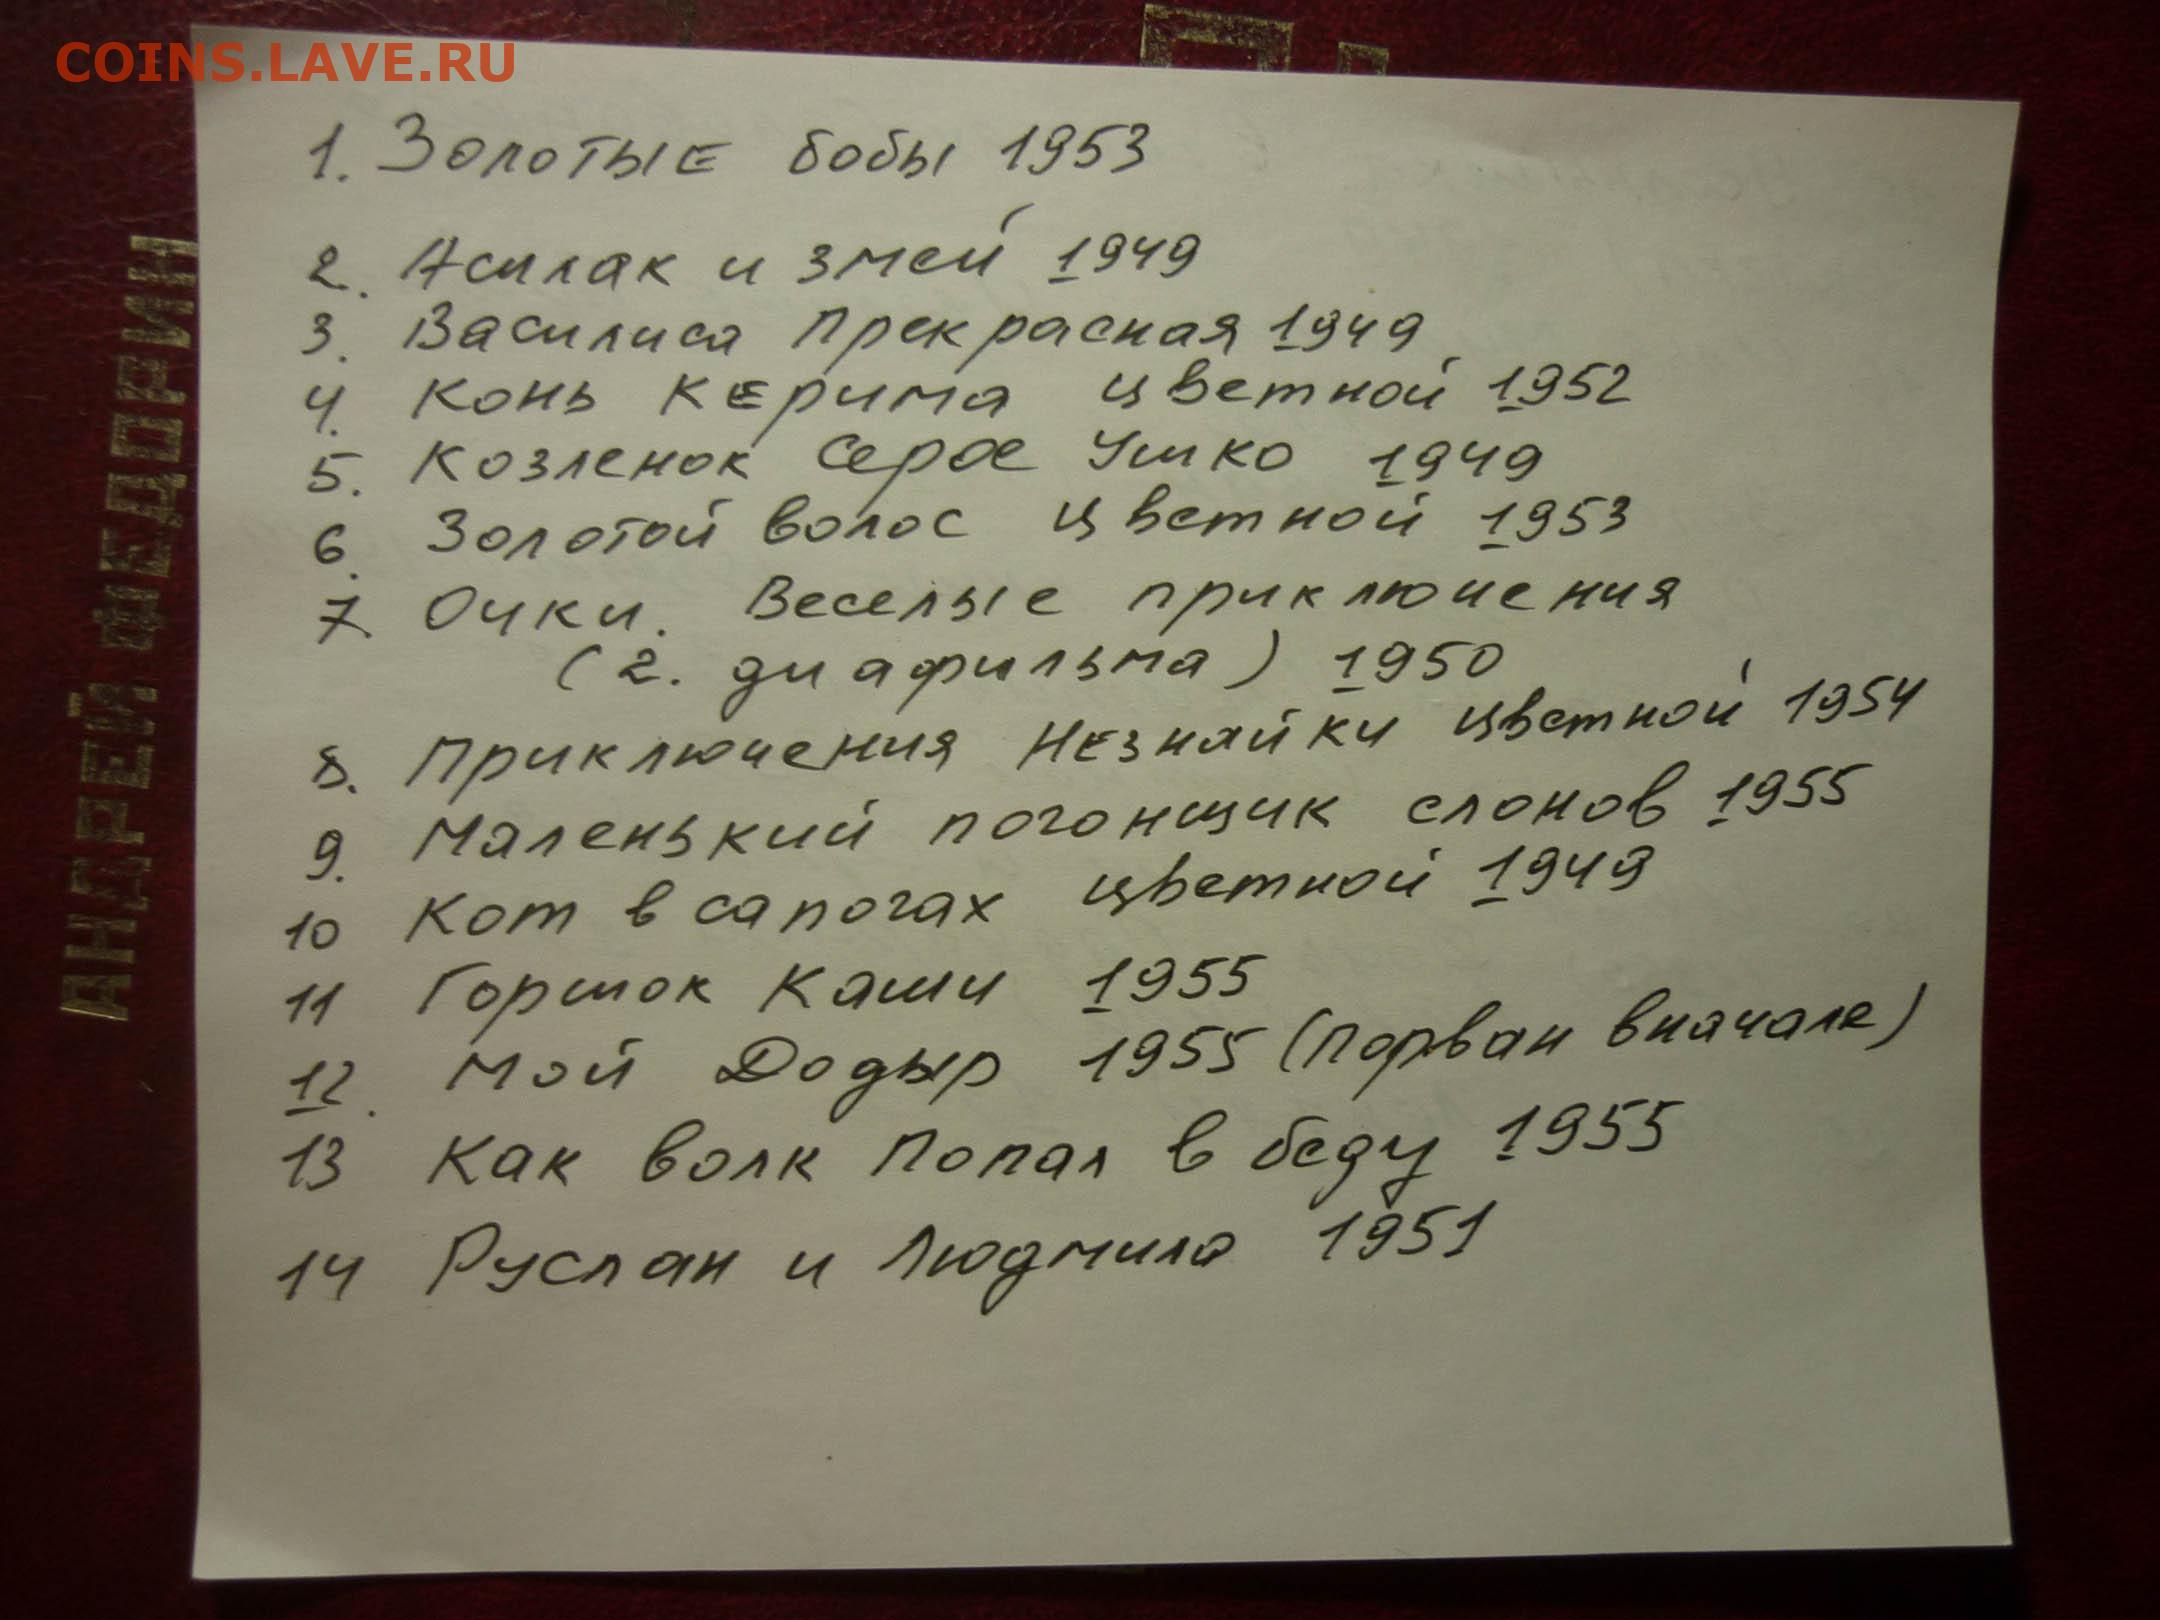 COINS.LAVE.RU
АНДРЕЙ ФЕДОРИН
1. Золотые бобы 1953
2. Асилак и змей 1949
3. Василиса Прекрасная 1949
4. Конь Керима цветной 1952
5. Козленок Серое Ушко 1949
6. Золотой волос цветной 1953
7. Очки. Веселые приключения
(2. диафильма) 1950
8. Приключения Незнайки цветной 1954
9. Маленький погонщик слонов 1955
10 Кот в сапогах цветной 1949
11 Горшок Каши 1955
12. Мой Додыр 1955 (Порван вначале)
13 Как волк Попал в беду 1955
14 Руслан и Людмила 1951